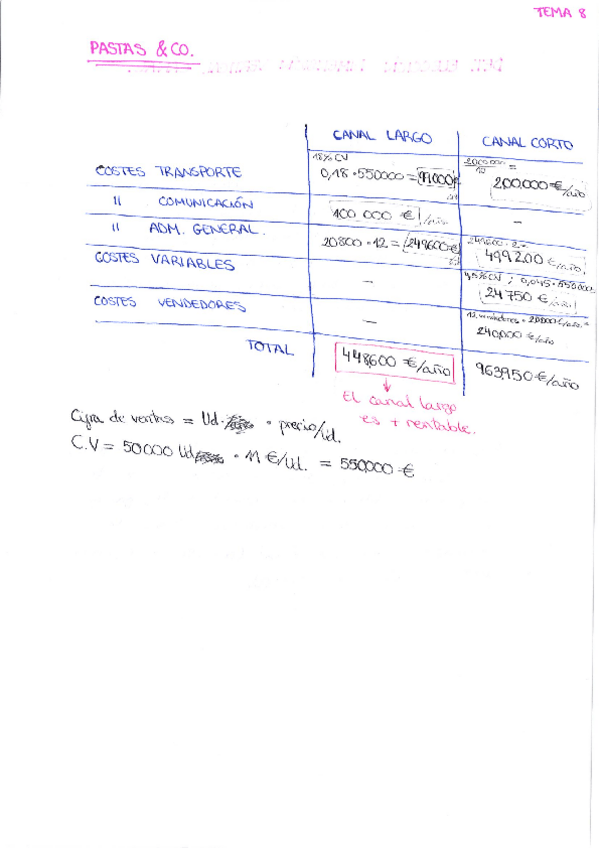 TEMA 8
PASTAS & CO.
CANAL LARGO
CANAL CORTO
COSTES TRANSPORTE
18% CV
0,18 · 550000 = 99.000 €
200.000 €/año
" COMUNICACIÓN
100.000 € /año
-
" ADM. GENERAL.
20800 · 12 = 249600 €
249.600 · 2 =
499.200 €/año
COSTES VARIABLES
-
4,5% CV ; 0,045 · 550.000 =
24.750 €/año
COSTES VENDEDORES
-
12 vendedores · 20.000 €/año =
240.000 €/año
TOTAL
448.600 €/año
963.950 €/año
El canal largo
es + rentable.
Cifra de ventas = Ud. · precio/ud.
C.V = 50.000 Ud · 11 €/Ud. = 550.000 €